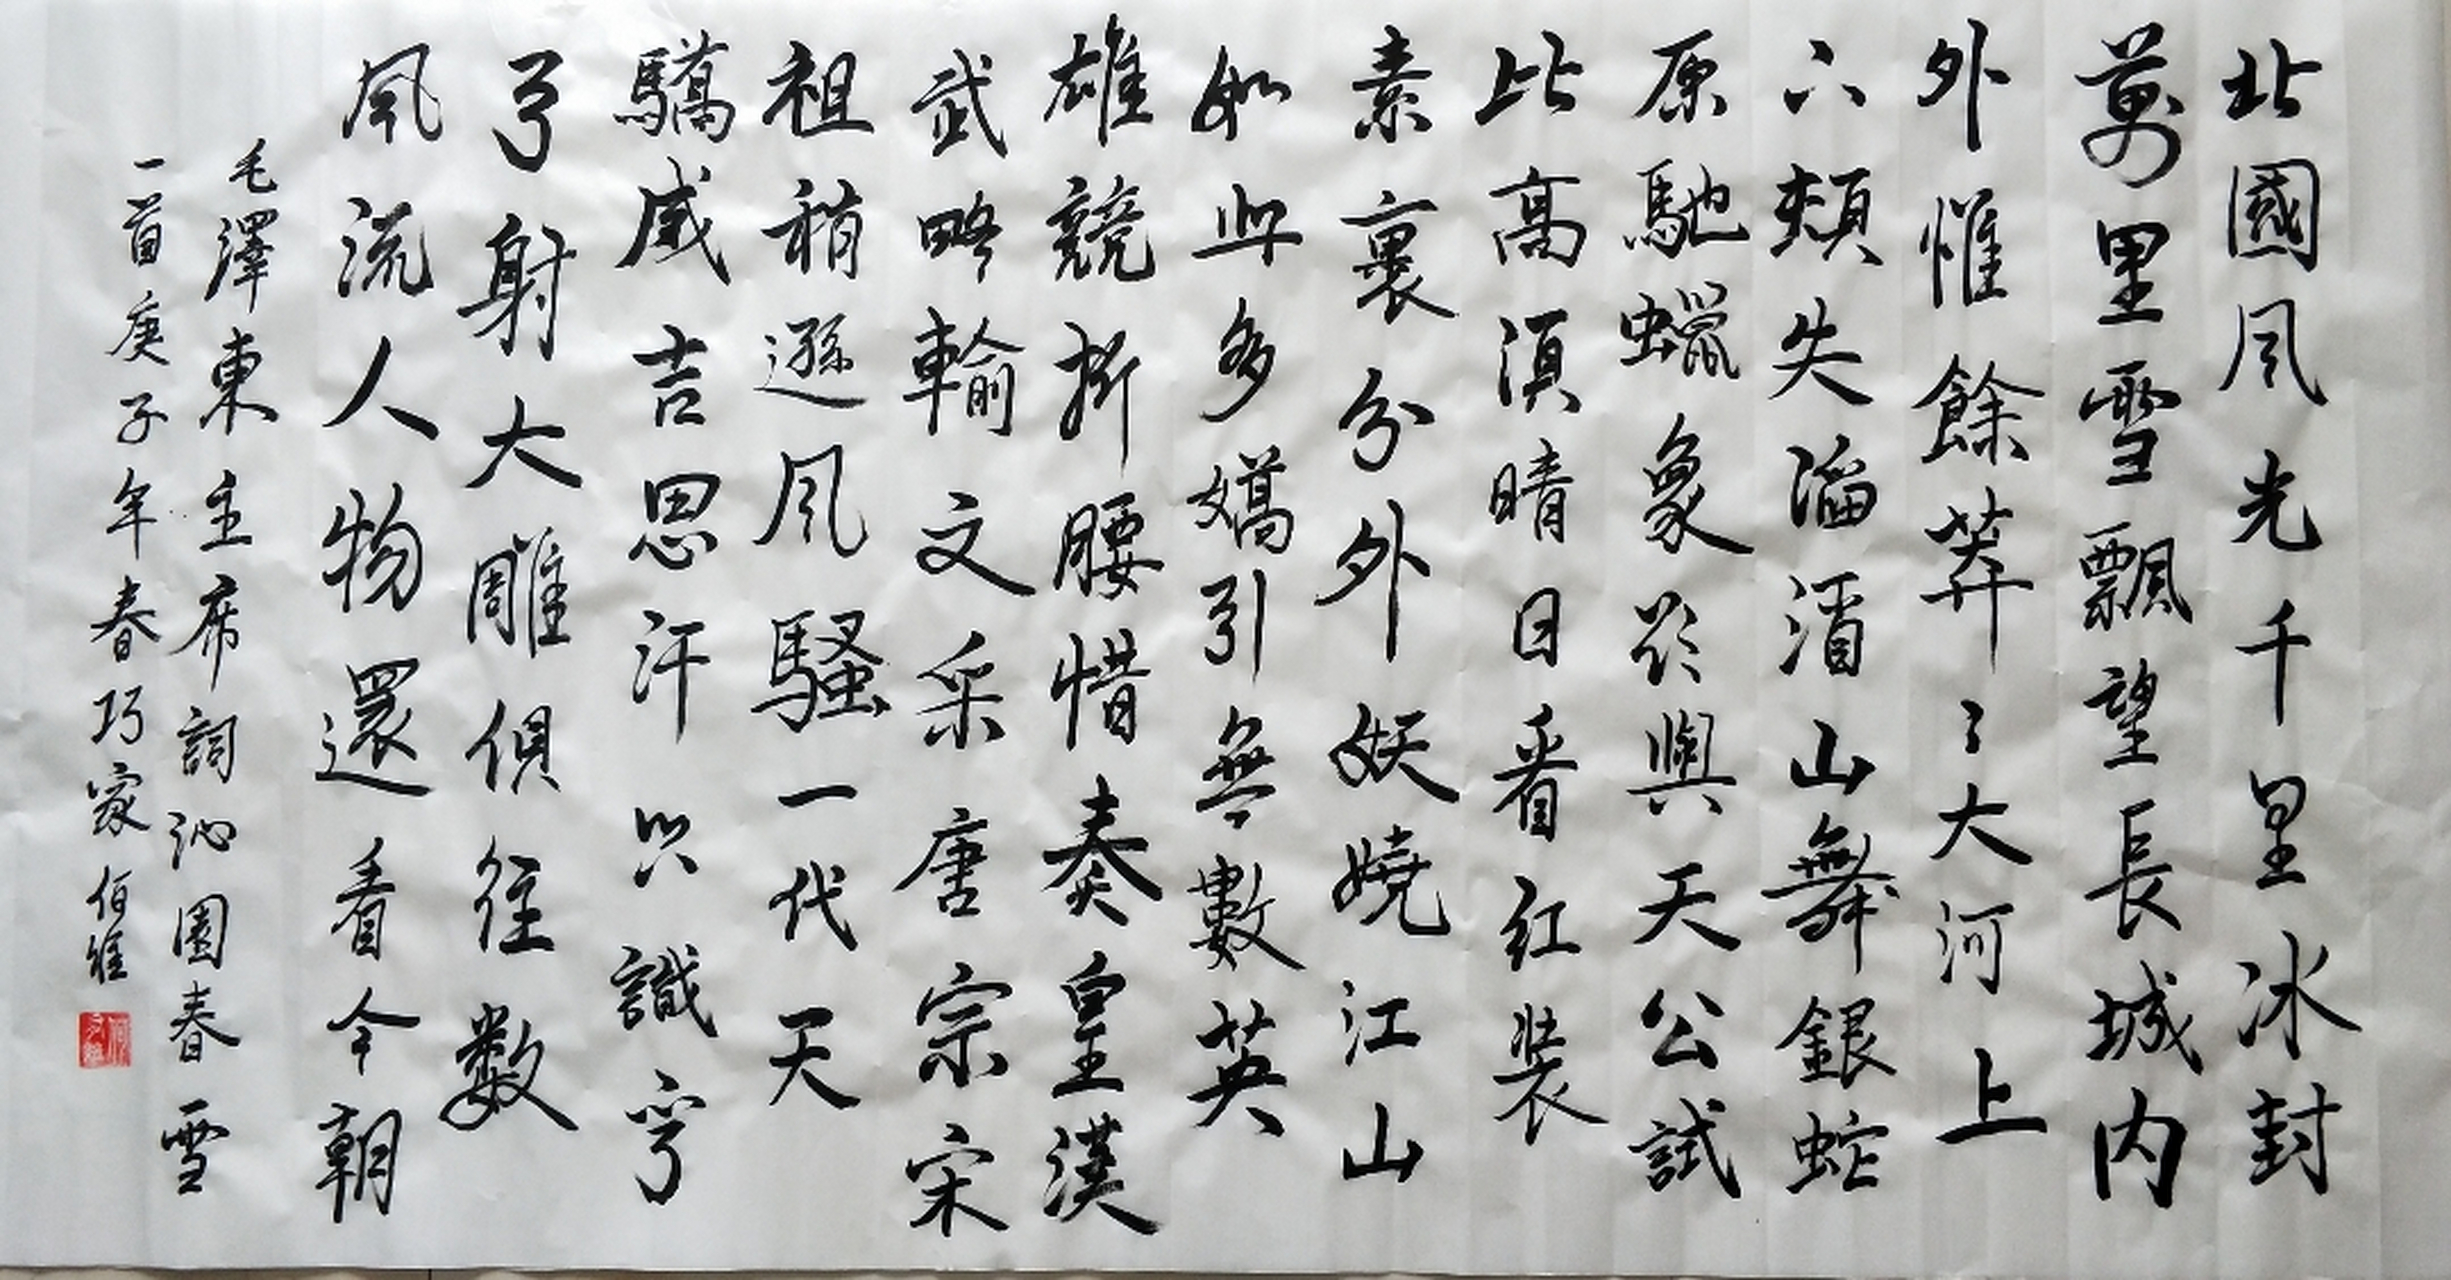 北國风光千里冰封
萬里雪飄望長城内
外惟餘莽々大河上
下頓失滔滔山舞銀蛇
原馳蠟象欲與天公試
比高須晴日看红装
素裹分外妖嬈江山
如此多嬌引無數英
雄競折腰惜秦皇漢
武略輸文采唐宗宋
祖稍遜风騷一代天
驕成吉思汗只識弯
弓射大雕俱往數
風流人物還看今朝
毛澤東主席詞沁園春雪
一首庚子年春巧家伯維